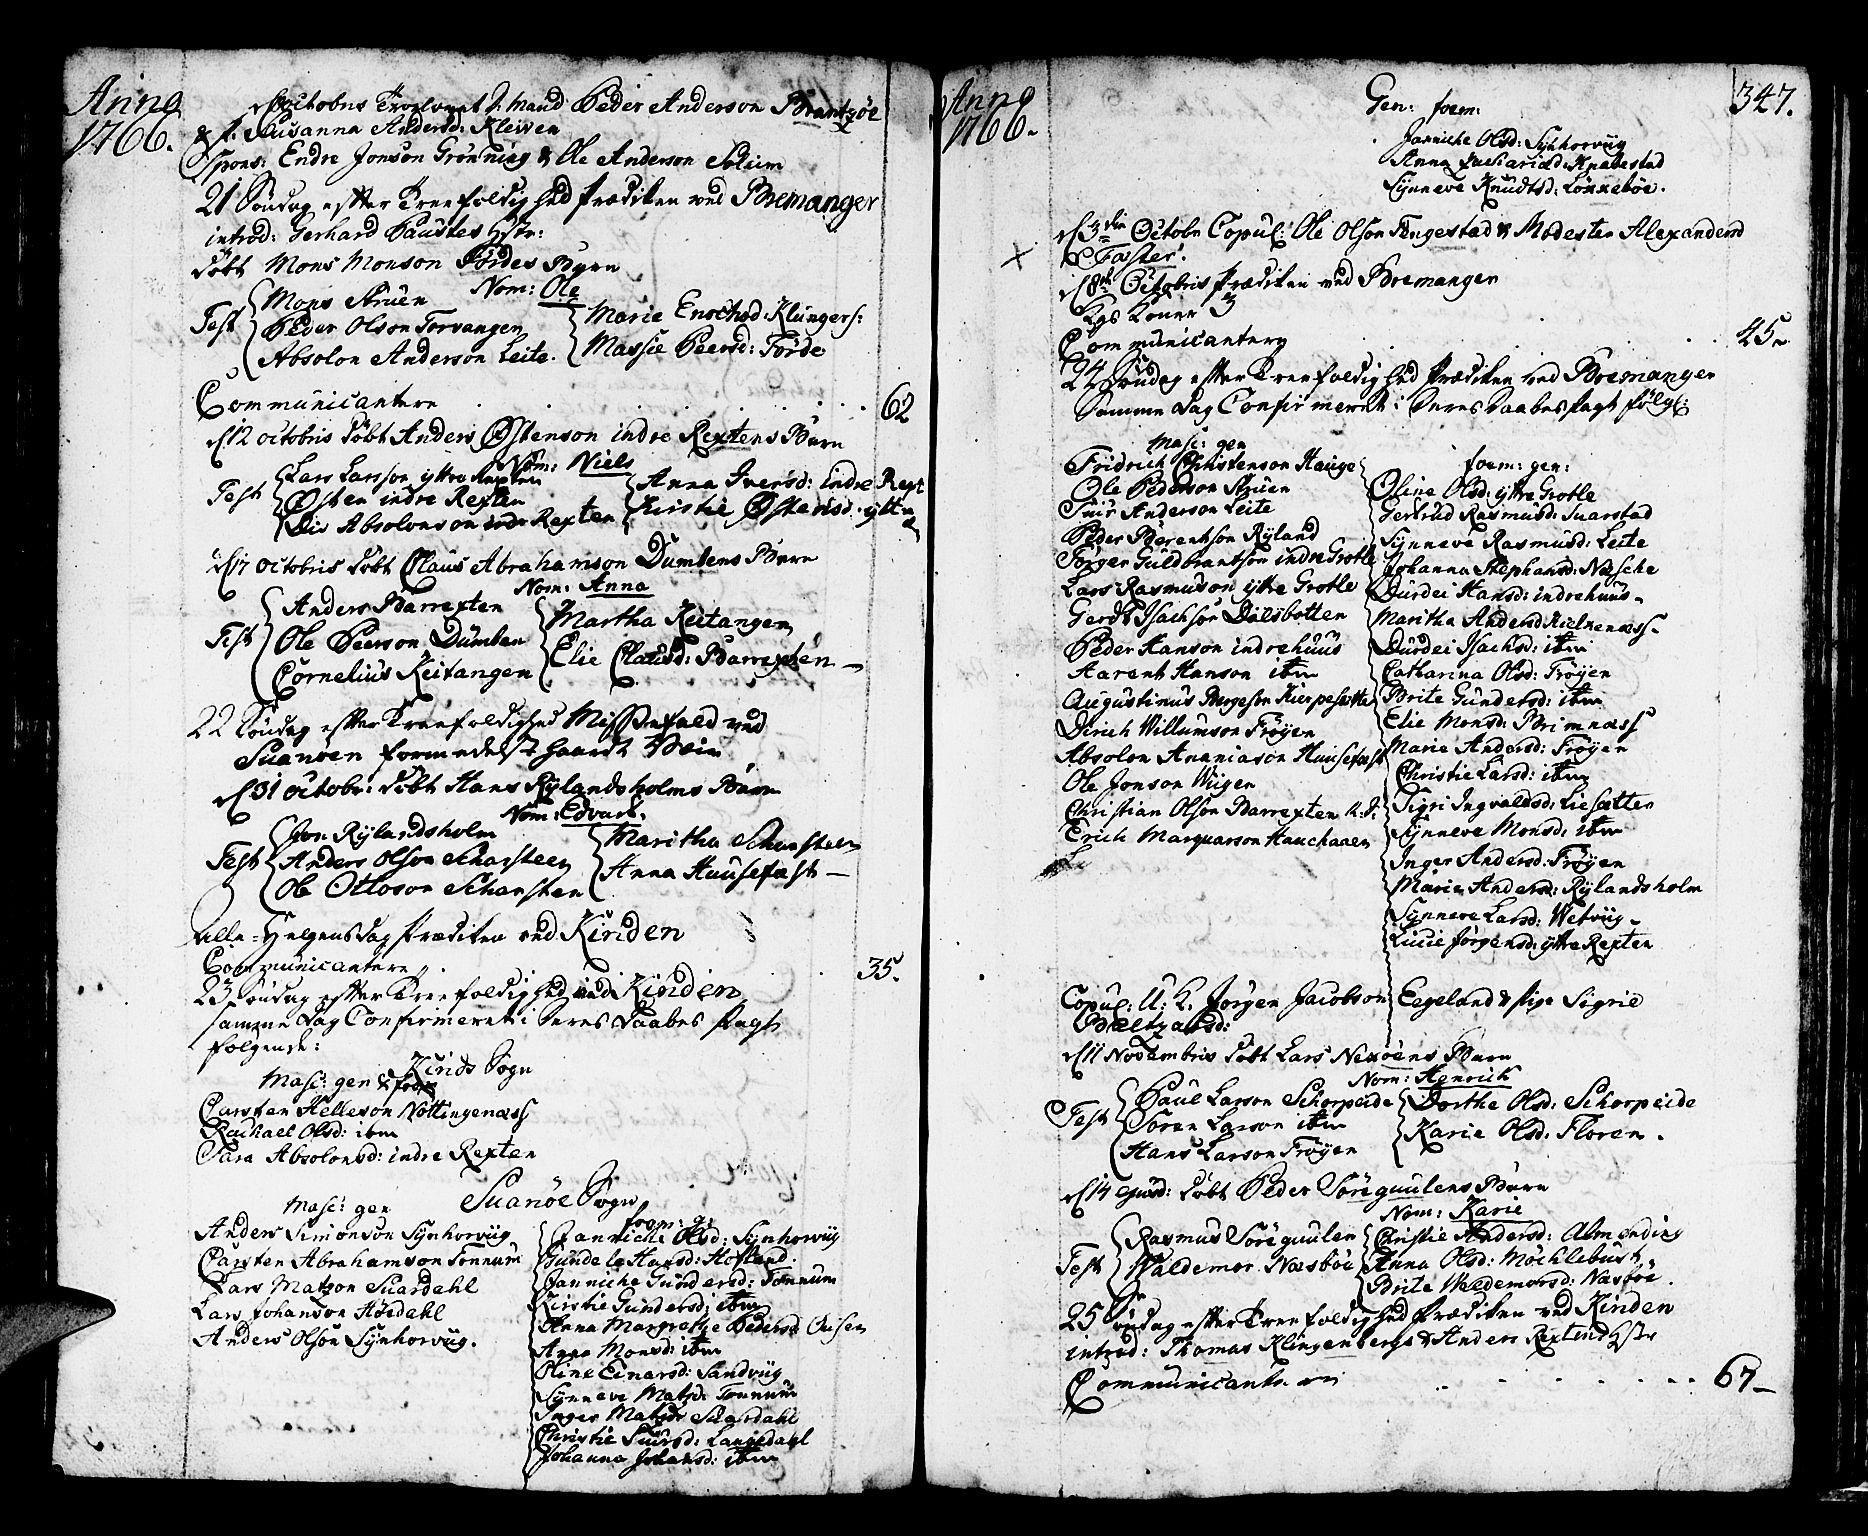 Anno
1766.
Octobris Trolovet J. Mand Peder Anderson Brantzöe
& p: Susanna Andersd: Kleiven
spons: Endre Jonson Grönning & Ole Anderson Solum
21 Söndag efter Treefoldighed Prædiken ved Bremanger
introd: Gerhard Paustes Hstr:
döbt Mons Monson Fördes Barn
Nom: Ole
Test Mons Struen
Peder Olson Torvangen
Absolon Anderson Leite.
Marie Enochsd: Klungers:
Massie Peersd: Förde
Communicantere 62
d 12 octobris döbt Anders Östenson indre Rextens Barn
Nom: Niels
Test Lars Larson yttre Rexten
Östen indre Rexten
Absolonson indre Rexten
Anna Iversd: indre Rext
Kirstie Östensd: yttre
d 17 octobris döbt Claus Abrahamson Dumbens Barn
Nom: Anna
Test Anders Barrexten
Ole Peerson Dumben
Cornelius Keitangen
Martha Keitangen
Elie Clausd: Barrexten
22 Söndag efter Treefoldighed Missefald ved
Suanöen formedelst haardt Veir
d 31 octobr: döbt Hans Rylandsholms Barn
Nom: Edvart.
Test Jon Rylandsholm
Anders Olson Scharsteen
Ole Ottoson Scharsten
Maritha Scharsteen
Anna Huusefast
Alle-Helgens dag Prædiken ved Kinden
Communicantere 35.
23 Söndag efter Treefoldighed ved Kinden
samme dag Confirmeret i deres Daabes Pagt
folgende:
Kinds Sogn
Masc: gen & foem
Carsten Helleson Nöttingenæss
Rachael Olsd: ibm
Sara Absolonsd: indre Rexten
Suanöe Sogn
Masc: gen
Anders Simonson Synhorviig
Carsten Abrahamson Tonnum
Lars Matzon Suardahl
Lars Johanson Hördahl
Anders Olson Synhorviig.
foem: g:
Janniche Olsd: Synhorviig
Gundele Hansd: Hofland.
Janniche Gundersd: Tonnum
Kirstie Gundersd: ibm
Anna Margrethe Pedersd Ousen
Anna Monsd: ibm
Oline Einersd: Sandviig
Synneve Matzd: Tonnum
Inger Matzdr Suardahl
Christie Siursd: Langedahl
Johanna Johansd: ibm
Anno
1766.
347.
Gen: foem:
Janniche Olsd: Synhorviig
Anna Zachariæd: Knabestad
Synneve Knudtsd: Lönneböe.
d 3die Octobr Copul: Ole Olson Tungestad & Modester Alexandersd
Faster.
d 8de Octobris Prædiken ved Bremanger
Kgs Koner 3
Communicantere 45
24 Söndag efter Treefoldighed Prædiken ved Bremanger
Samme dag Confirmeret i deres Daabes Pagt fölg:
Masc: gen
Fridrich Christenson Hauge
Ole Pederson Struen
Siur Anderson Leite
Peder Berentson Ryland
Jörgen Guldbrantson indre Grotle
Lars Rasmuson yttre Grotle
Gerdt Isachson Dalsbotten
Peder Hanson indrehuus
Aarent Hanson ibm
Augustinus Borgeson Kierpesætte
Dirich Willumson Fröyen
Absolon Ananiason Huusefast
Ole Jonson Wiigen
Christian Olson Barrexten
Erich Marquarson Hauchaaen
foem: gen:
Oline Olsd: yttre Grotle
Gertrud Rasmusd: Suarstad
Synneve Rasmusd: Leite
Johanna Stephansd: Næsche
Durdei Hansd: indrehuus
Maritha Andersd Kielkenæss
Durdei Isachsd: ibm
Catharina Olsd: Fröyen
Brite Gundersd: ibm
Elie Monsd: Brimnæss
Marie Andersd: Fröyen
Christie Larsd: ibm
Sigri Ingvaldsd: Liesætter
Synneve Monsd: ibm
Inger Andersd: Fröyen
Marie Andersd: Rylandsholm
Synneve Larsd: Wetviig
Lucie Jörgensd: yttre Rexten
Copul: U: K. Jörgen Jacobson Eegeland & pige Sigrie
Baltzarsd:
d 11 Novembris döbt Lars Nexöens Barn
Nom: Henrich
Test Paul Larson Schorpeide
Sören Larson ibm
Hans Larson Fröyen
Dorthe Olsd: Schorpeide
Karie Olsd: Floren.
d 14 ejusd: döbt Peder Söreguulens Barn
Nom: Karie
Test Rasmus Söreguulen
Waldemor Næsböe
Christie Andersd: Almending
Anna Olsd: Möchlebust
Brite Waldemorsd: Næsböe.
25 Söndag efter Treefoldighed Prædiken ved Kinden
introd: Thomas Klingenbergs & Anders Rextens Hstr
Communicantere 67